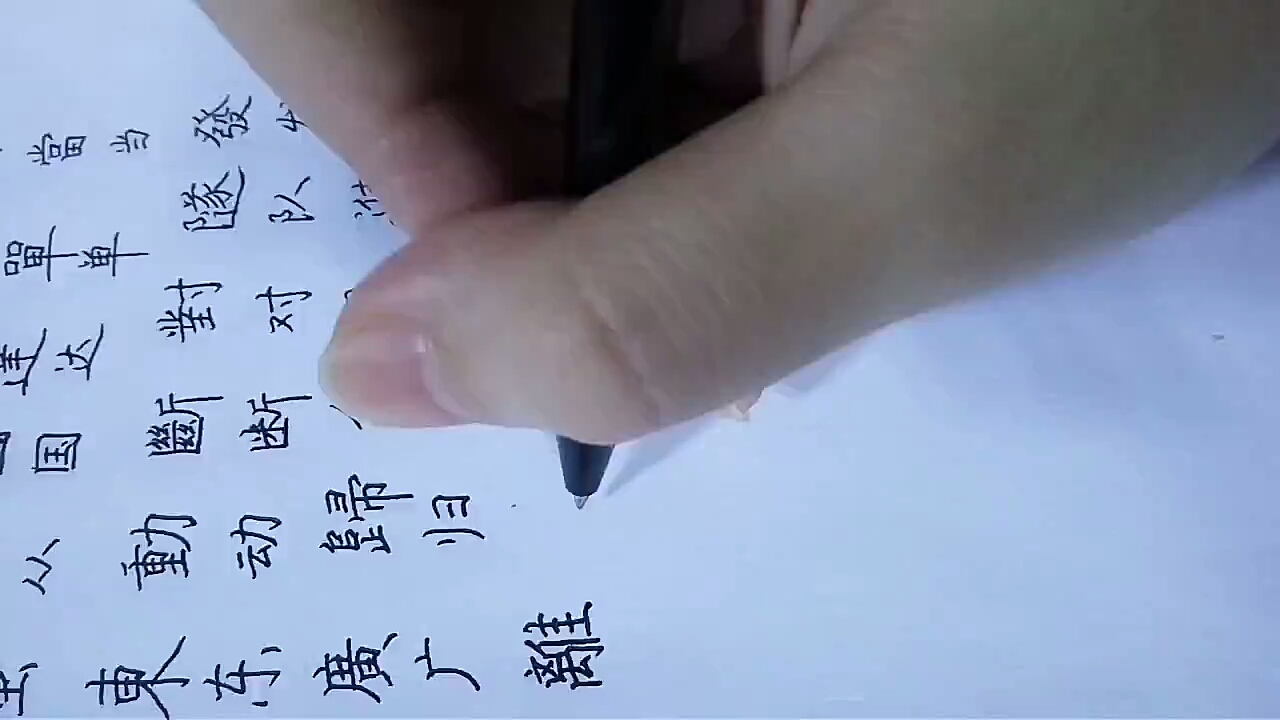 達 單 當
从 国 达 单 当
東 動 斷 對 隊 發
东 动 断 对 队
廣 歸
广 归
離